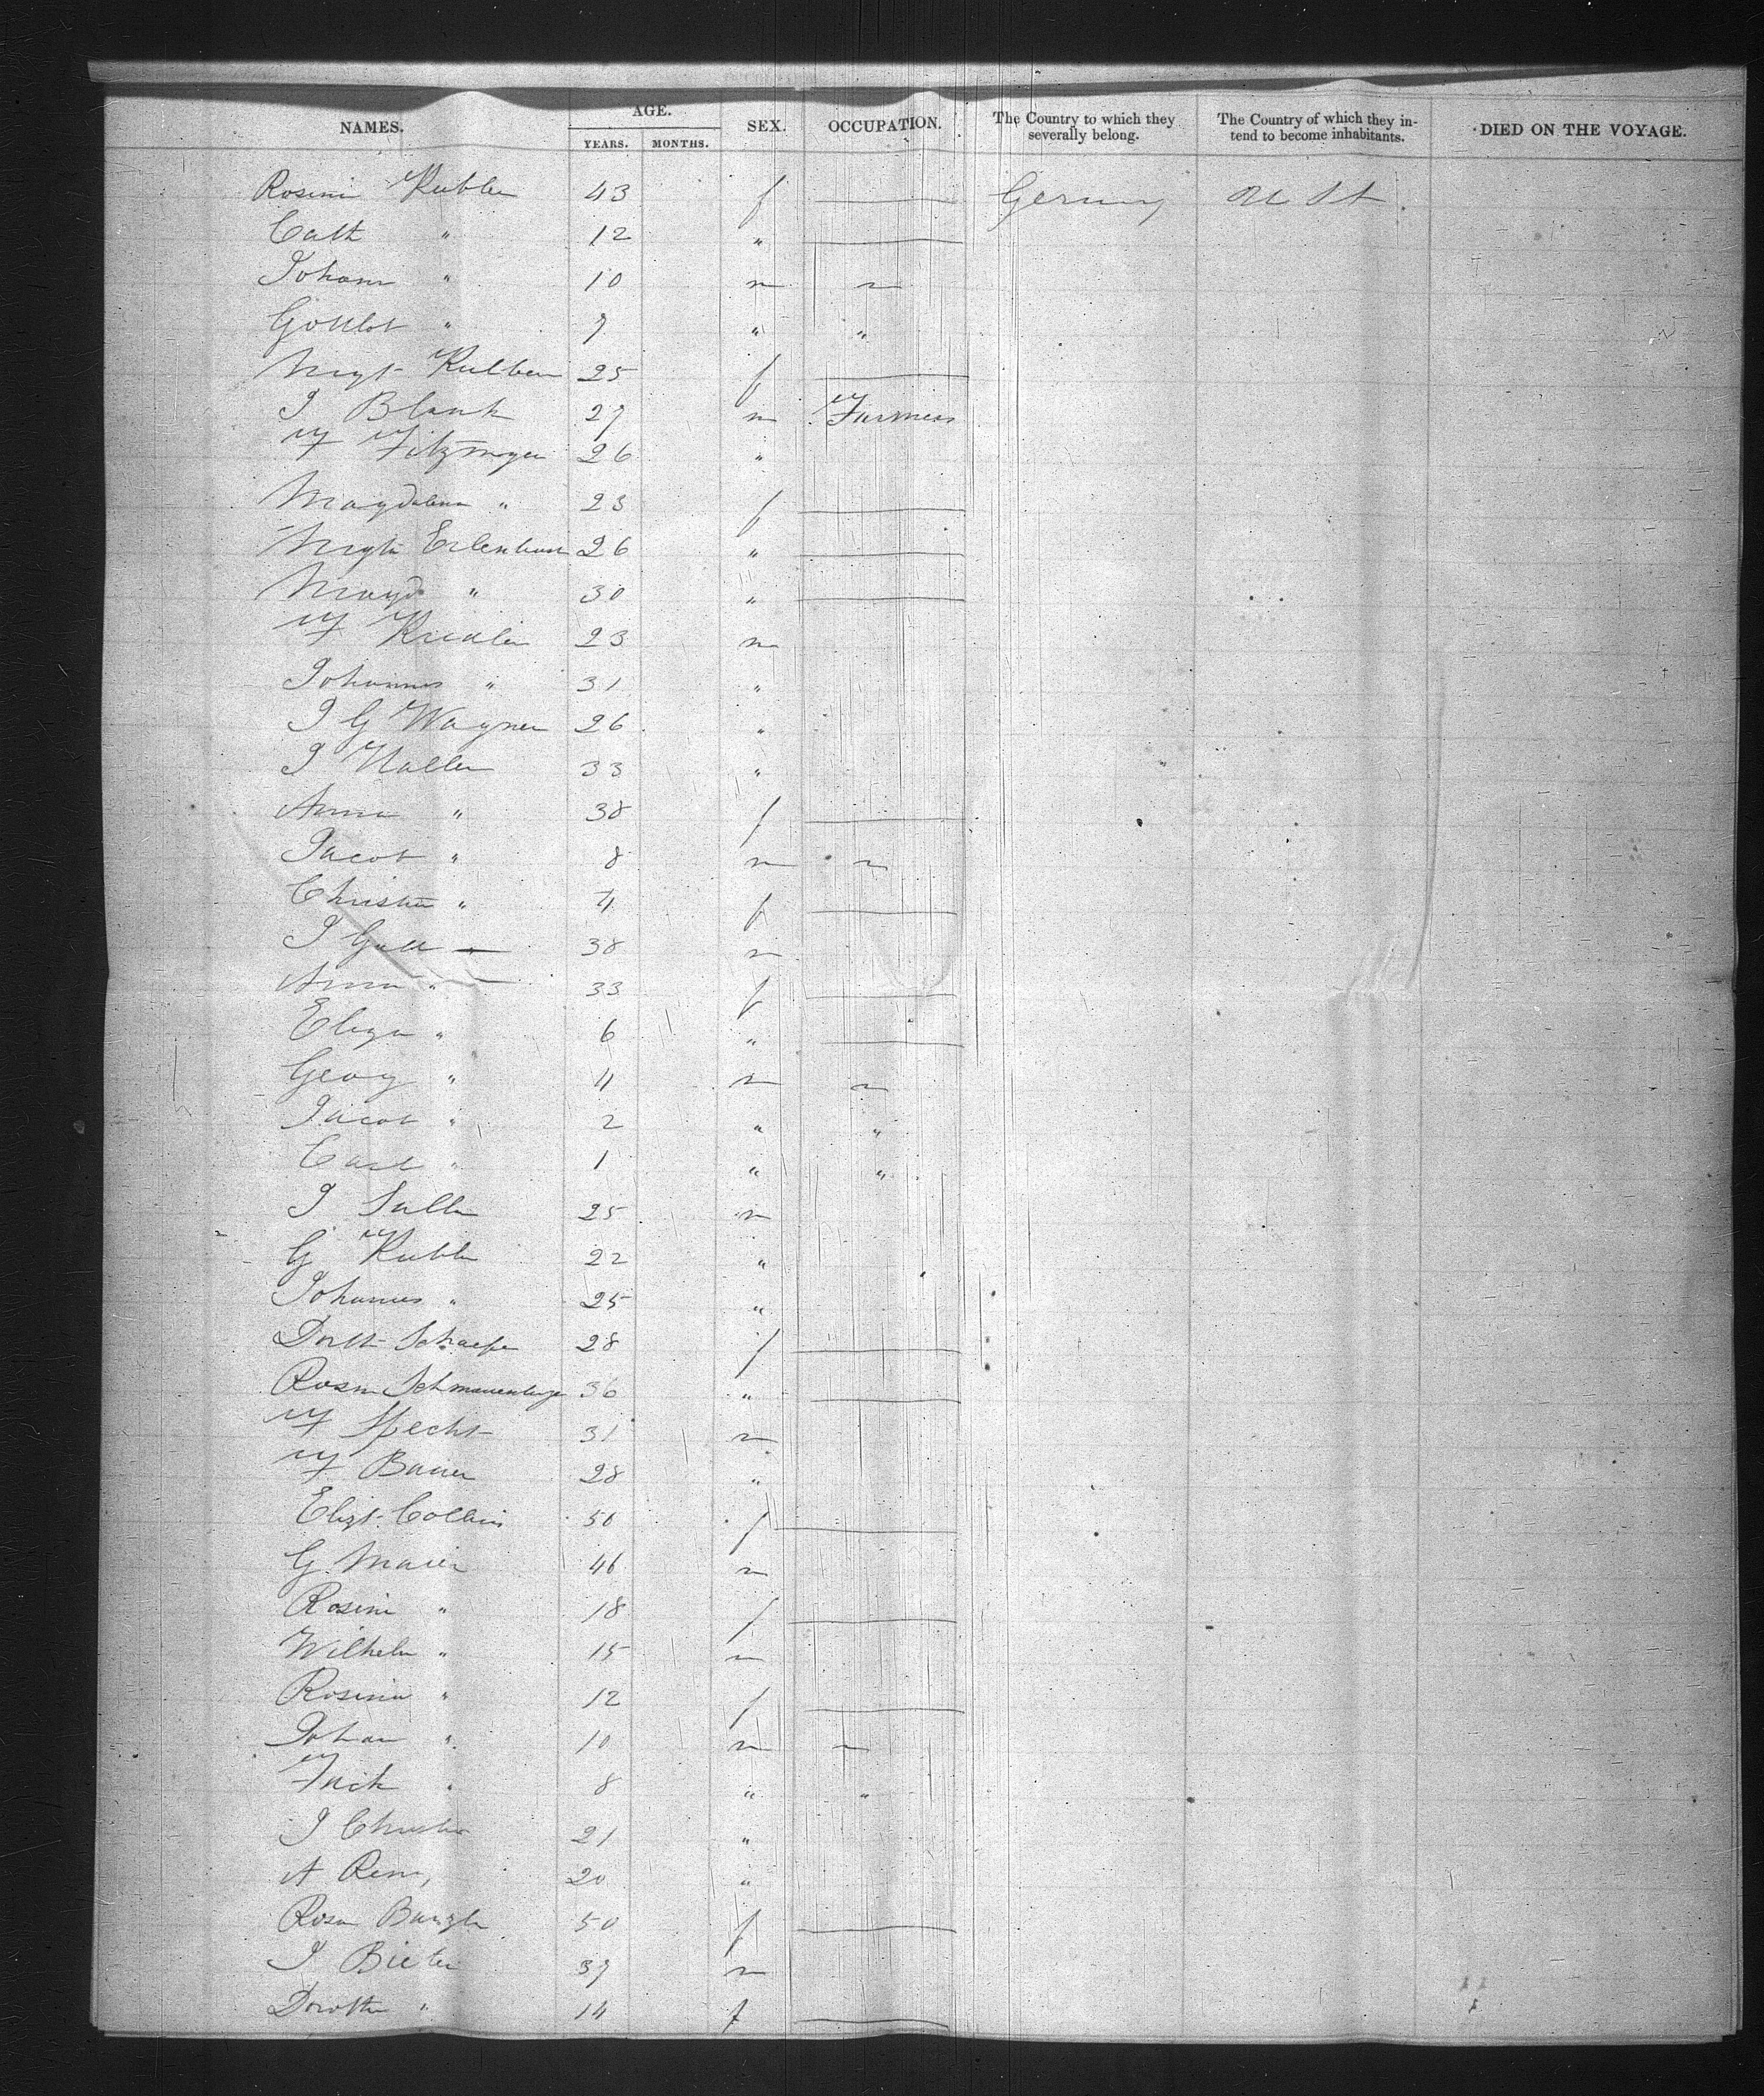 NAMES. AGE. SEX. OCCUPATION. The Country to which they severally belong. The Country of which they intend to become inhabitants. DIED ON THE VOYAGE.
YEARS. MONTHS.
Rosini Kubler 43 f — Germny U St
Cath " 12 " —
Johann " 10 m ~
Gottlob " 9 " "
Mgt 25 f —
J Blank 27 m Farmers
F Fitzmeyer 26 "
Magdalena " 23 f —
Mgt 26 " —
Magd " 30 " —
F 23 m
Johannes " 31 "
J G Wagner 26 "
J Haller 33 "
Anna " 38 f —
Jacob " 8 m ~
Christin " 4 f —
J Gall — 38 m
Anna " 33 f —
Eliza " 6 " —
Georg " 4 m ~
Jacob " 2 " "
Carl " 1 " "
J 25 m
G Kubler 22 "
Johannes " 25 "
Doth Schaefer 28 f —
Rosin 36 " —
F Specht 31 m
F Bauer 28 "
Elizt. Collins 50 f —
G. Maier 46 m
Rosine " 18 f —
Wilhelm " 15 m
Rosina " 12 f —
Johan " 10 m ~
" 8 " "
J Christn 21 "
A 20 "
Rosa 50 f —
J Bieler 37 m
Dorothe " 14 f —